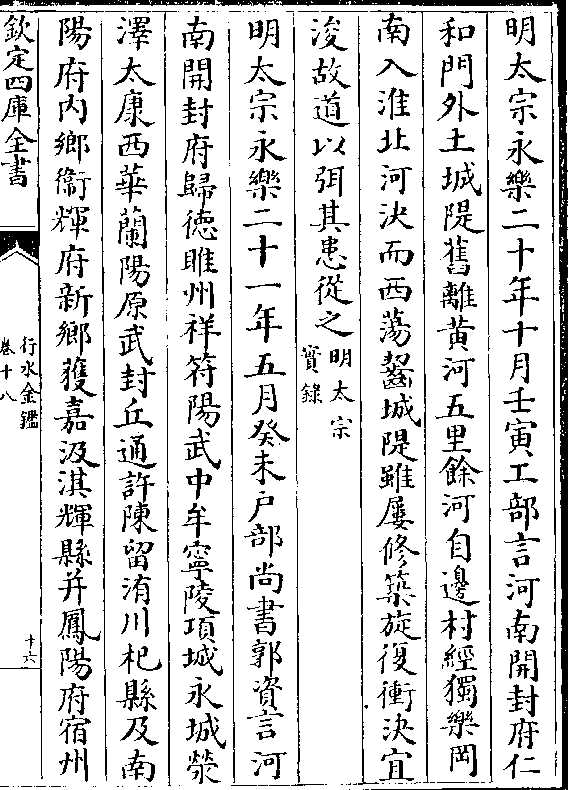 明太宗永樂二十年十月壬寅工部言河南開封府仁
和門外土城隄舊離黃河五里餘河自邊村經獨樂岡
南入淮北河決而西蕩齧城隄雖屢修築旋復衝決宜
浚故道以弭其患從之明太宗
實錄
明太宗永樂二十一年五月癸未戶部尚書郭資言河
南開封府歸德睢州祥符陽武中牟寧陵項城永城滎
澤太康西華蘭陽原武封丘通許陳留洧川杞縣及南
陽府內鄉衛輝府新鄉獲嘉汲淇輝縣并鳳陽府宿州
欽定四庫全書
行水金鑑
卷十八
十六